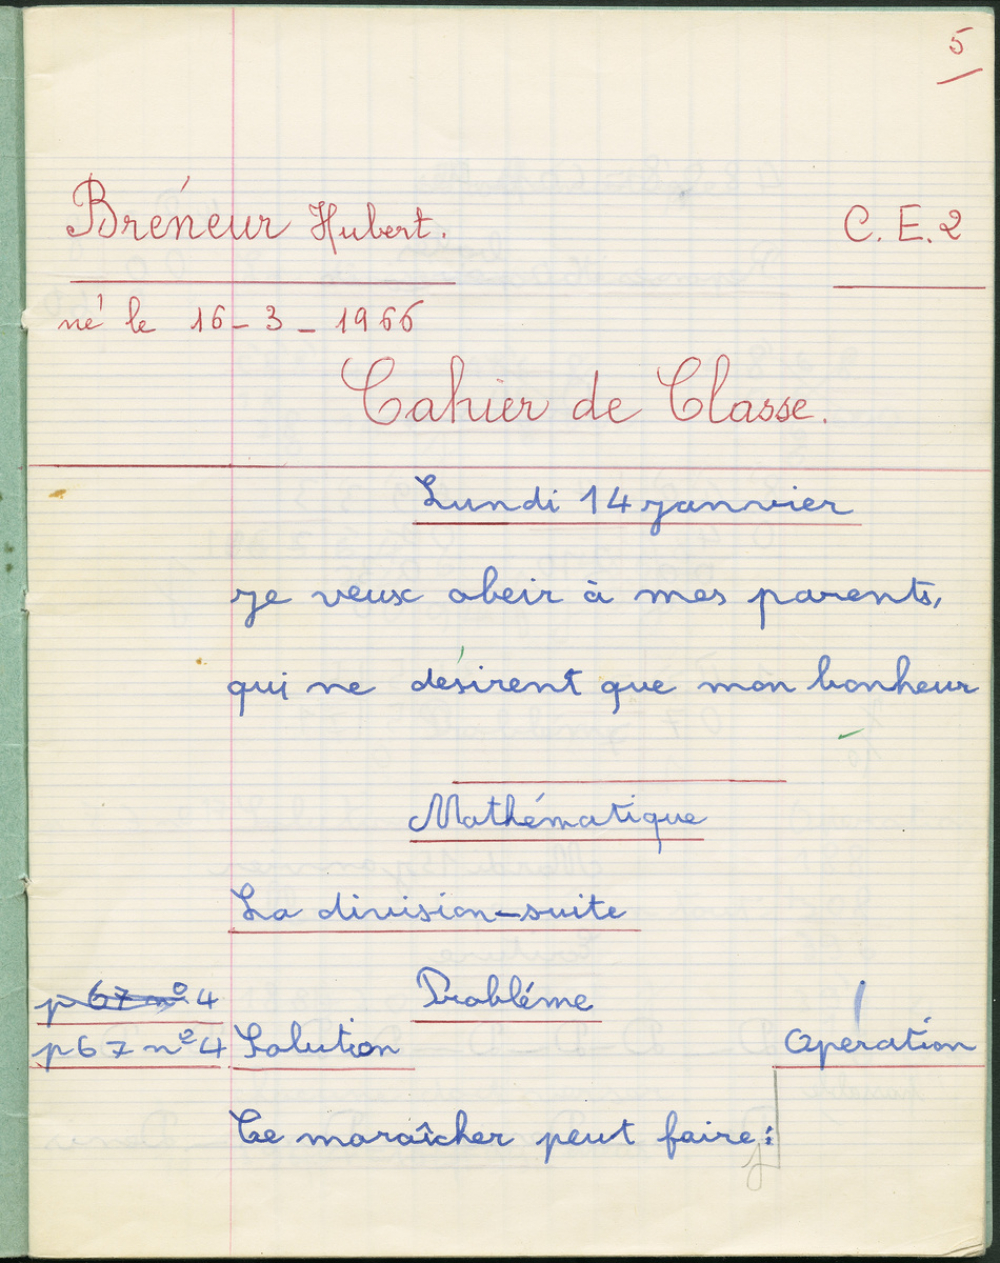 5
Bréneur Hubert. C.E.2
né le 16-3-1966
Cahier de Classe.
Lundi 14 janvier
je veux obeir à mes parents,
qui ne désirent que mon bonheur
Mathématique
La division-suite
p 67 nº 4 Probléme
p 67 nº 4 Solution Opération
Le maraîcher peut faire: